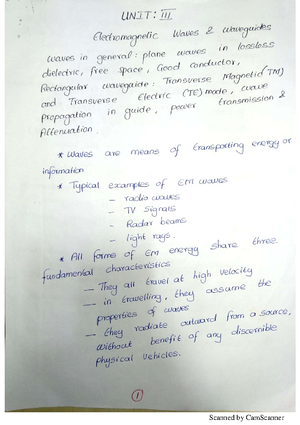 UNIT: III
Electromagnetic Waves & Waveguides
Waves in general: plane waves in lossless
dielectric, free space, Good conductor,
Rectangular waveguide: Transverse Magnetic (TM)
and Transverse Electric (TE) mode, wave
Propagation in guide, power transmission &
Attenuation.
* Waves are means of transporting energy or
information
* Typical examples of EM waves
- radio waves
- TV signals
- Radar beams
- light rays.
* All forms of EM energy share three
fundamental characteristics
- They all travel at high velocity
- in travelling, they assume the
properties of waves
- they radiate outward from a source,
without benefit of any discernible
physical vehicles.
1
Scanned by CamScanner